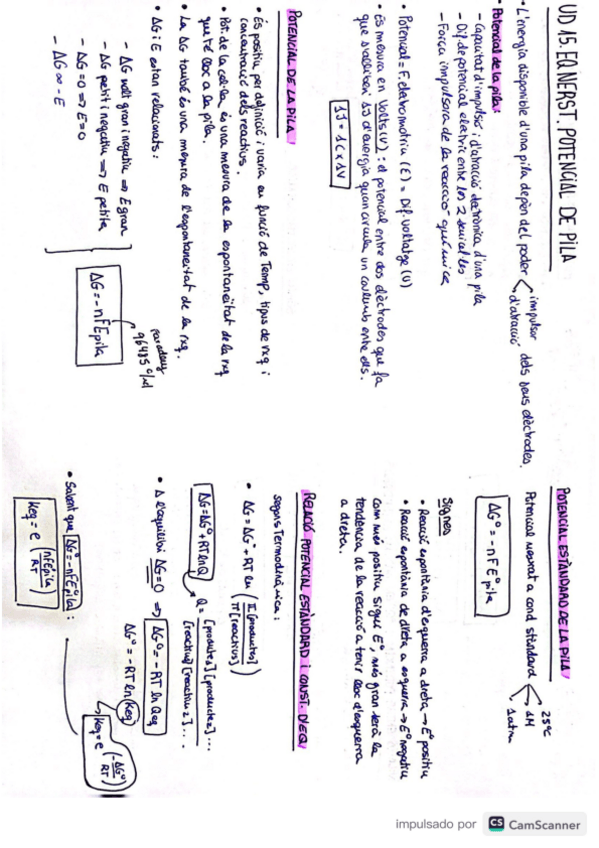 UD 15. EQ. NERST. POTENCIAL DE PILA
• L'energia disponible d'una pila depèn del poder < impulsor / d'atracció dels seus elèctrodes.
• Potencial de la pila:
- Capacitat d'impulsió i d'atracció electrònica d'una pila
- Dif. de potencial elèctric entre les 2 semicel·les
- Força impulsora de la reacció química
• Potencial = F. eletromotriu (E) = Dif. voltatge (V)
• Es mesura en Volts (V): el potencial entre dos elèctrodes que fa
que s'alliberi 1J d'energia quan circula un coulomb entre ells.
1J = 1C x 1V
POTENCIAL DE LA PILA
• És positiu per definició i varia en funció de Temp, tipus de rxq i
concentració dels reactius.
• Pot. de la cel·la és una mesura de la espontaneïtat de la rxq
que té lloc a la pila.
• La ΔG també és una mesura de l'espontaneïtat de la rxq.
• ΔG i E estan relacionats:
- ΔG molt gran i negatiu ⇒ E gran
- ΔG petit i negatiu ⇒ E petita
- ΔG = 0 ⇒ E = 0
- ΔG ∞ - E
ΔG = -nFEpila
faraday
96485 C/mol
POTENCIAL ESTÀNDARD DE LA PILA
Potencial mesurat a cond standard
25ºC
1M
1atm
ΔGº = -nFEºpila
Signes
• Reacció espontània d'esquerra a dreta → Eº positiu
• Reacció espontània de dreta a esquerra → Eº negatiu
Com més positiu sigui Eº, més gran serà la
tendència de la reacció a tenir lloc d'esquerra
a dreta.
RELACIÓ POTENCIAL ESTÀNDARD I CONST. D'EQ
segons Termodinàmica:
• ΔG = ΔGº + RT ln (π[productes] / π[reactius])
ΔG = ΔGº + RT lnQ
Q = [producte1][producte2]... / [reactiu1][reactiu2]...
• A l'equilibri ΔG = 0 ⇒ ΔGº = -RT ln Qeq
ΔGº = -RT ln(Keq)
Keq = e (-ΔGº/RT)
• Sabent que ΔGº = -nFEºpila:
Keq = e (nFEºpila/RT)
impulsado por CS CamScanner